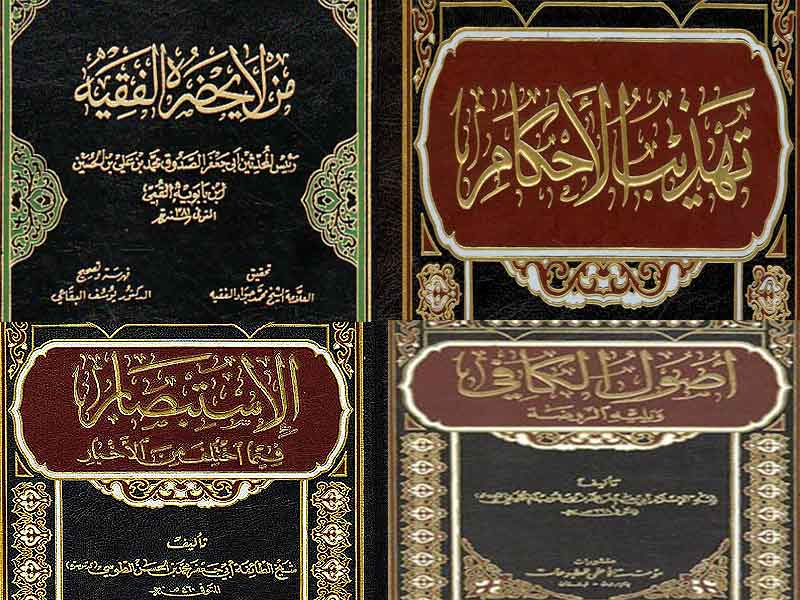 من لا يحضره الفقيه
رئيس المحدثين أبي جعفر الصدوق محمد بن علي بن الحسين
ابن بابويه القمي
المتوفى ٣٨١ هـ
تحقيق
العلامة الشيخ محمد جواد الفقيه
فهرسة وتصحيح
الدكتور يوسف البقاعي
تهذيب الأحكام
الاستبصار
فيما اختلف من الأخبار
تأليف
شيخ الطائفة أبي جعفر محمد بن الحسن الطوسي
المتوفى ٤٦٠ هـ
أصول الكافي
ويليه الروضة
تأليف